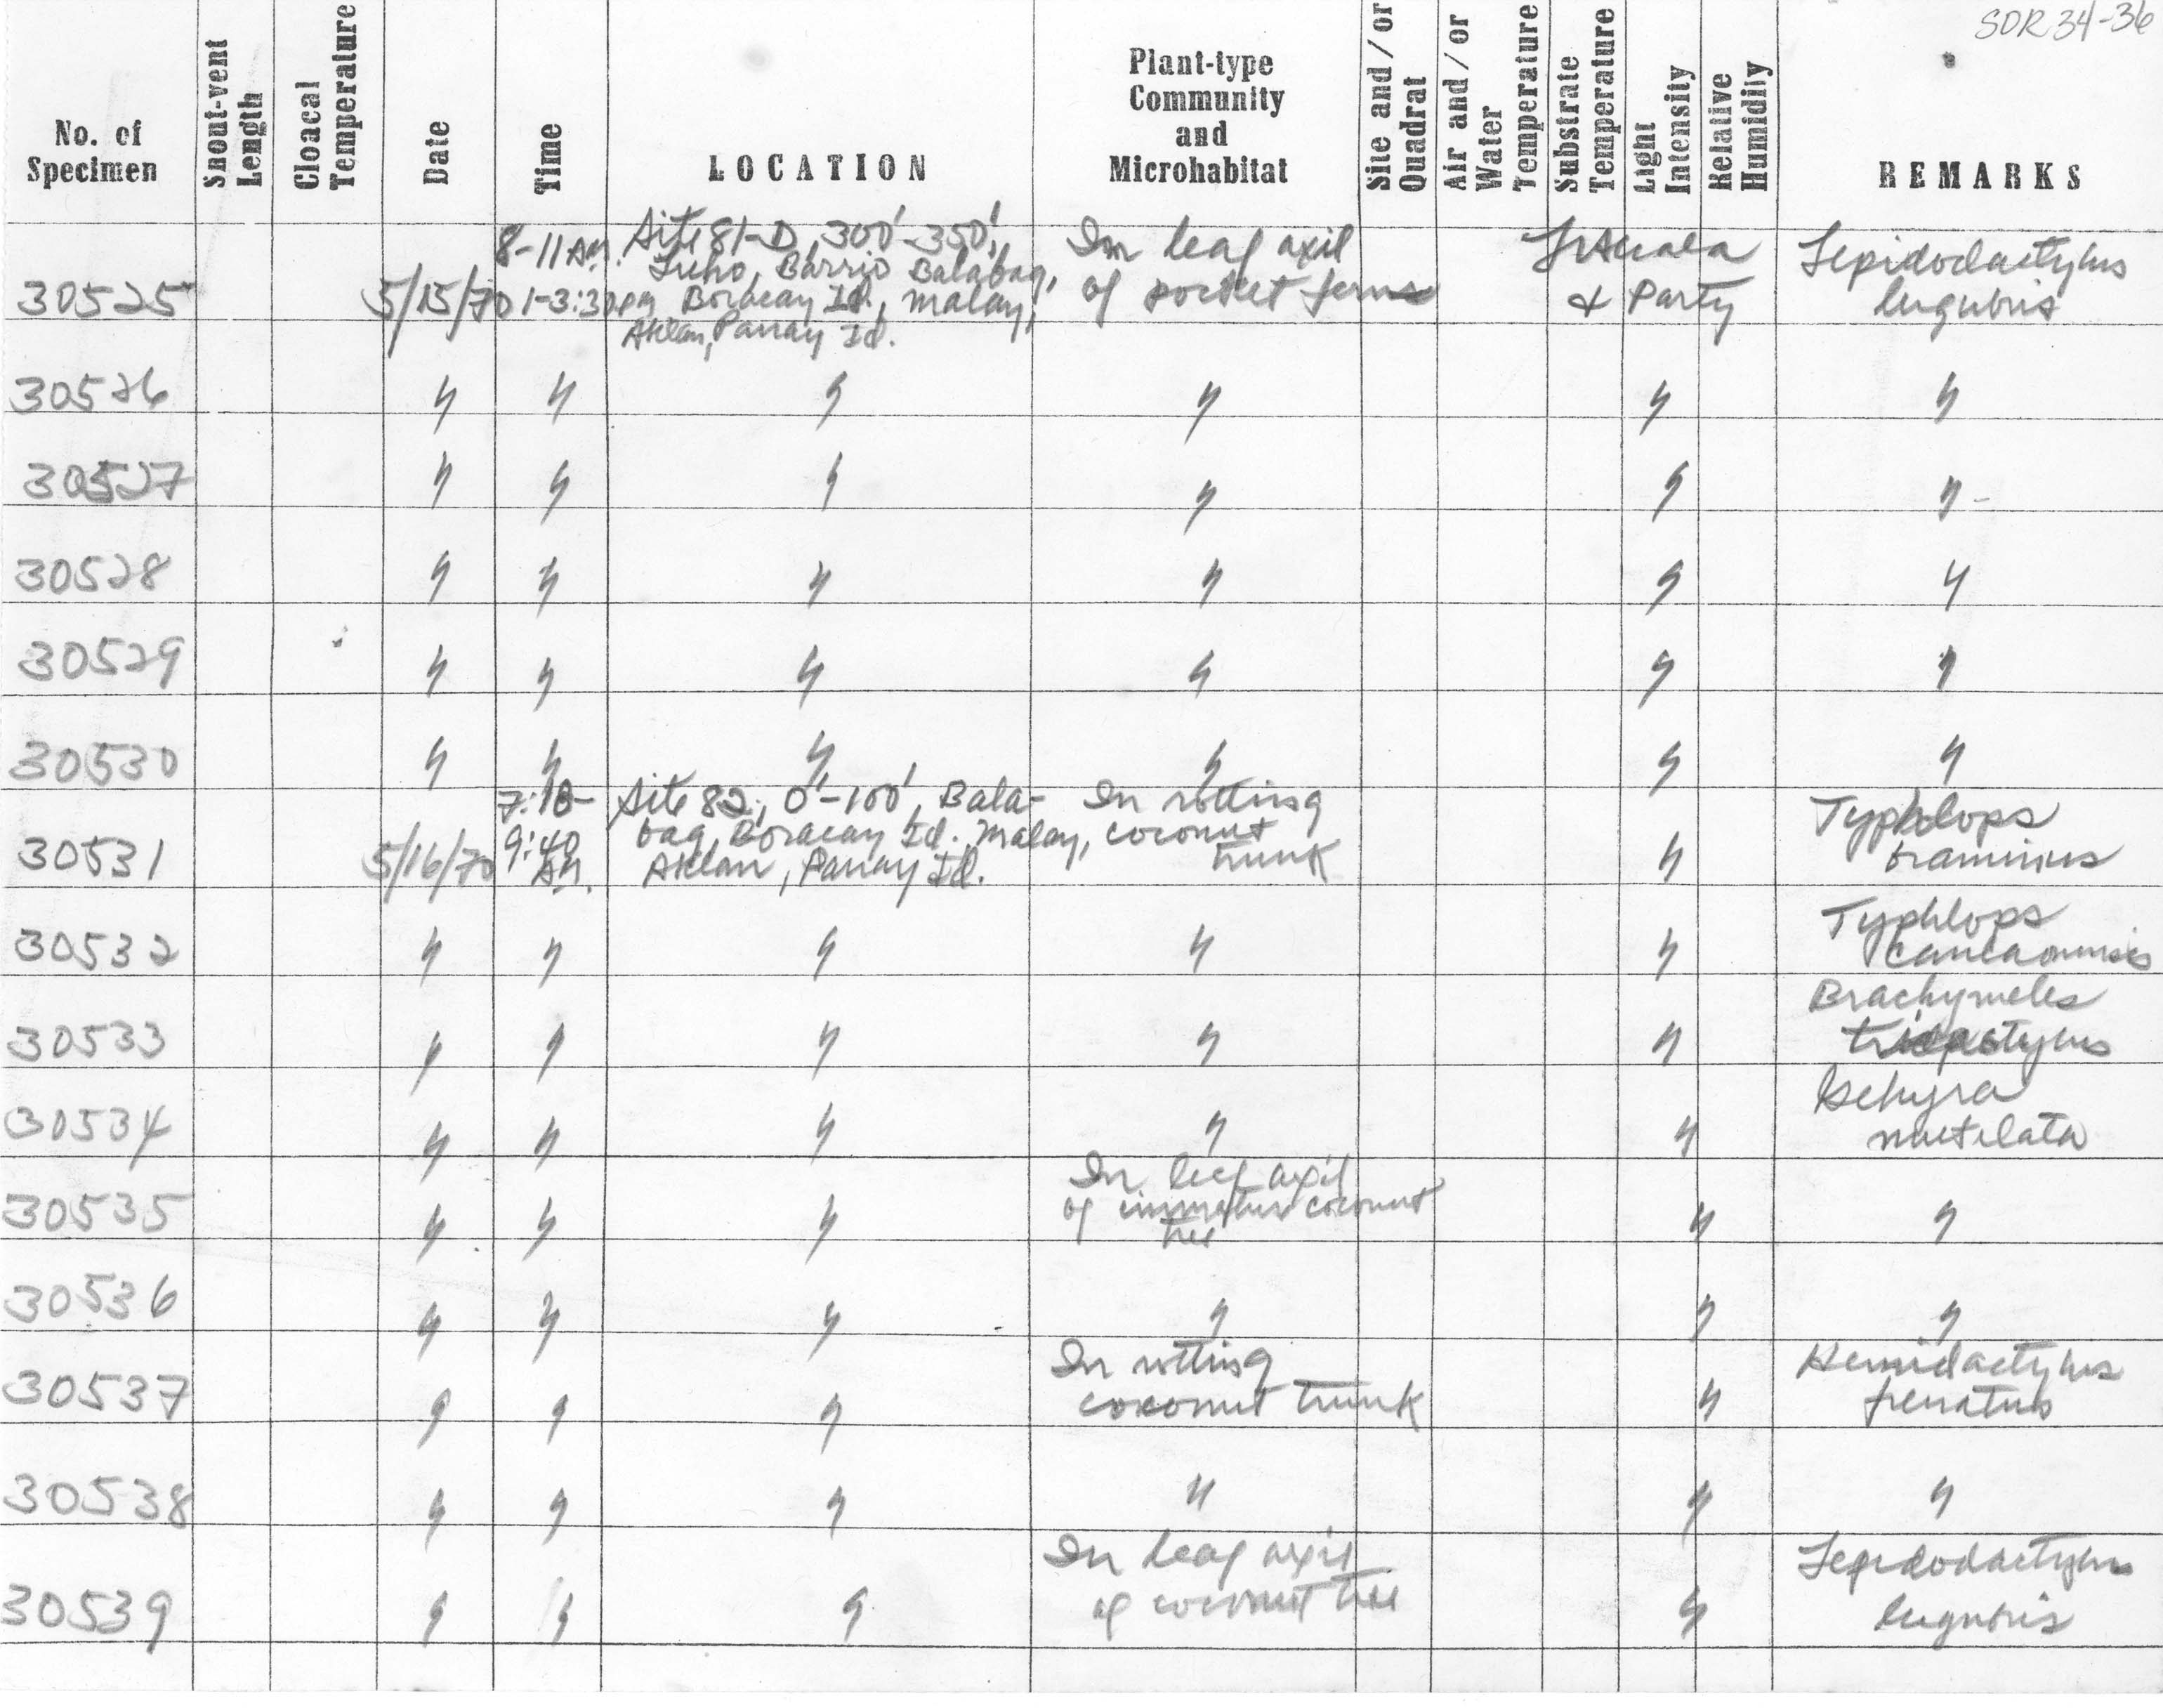 SDR 34-36
No. of Specimen
Snout-vent Length
Cloacal Temperature
Date
Time
LOCATION
Plant-type Community and Microhabitat
Site and/or Quadrat
Air and/or Water Temperature
Substrate Temperature
Light Intensity
Relative Humidity
REMARKS
30525 5/15/70 8-11 AM. 1-3:30 PM Site 81-D, 300'-350', Barrio Balabag, Boracay Id., Malay, Aklan, Panay Id. In leaf axil of pocket ferns & Party Lepidodactylus lugubris
30526 " " " " " "
30527 " " " " " "
30528 " " " " " "
30529 " " " " " "
30530 " " " " " "
30531 5/16/70 7:10-9:40 AM. Site 82, 0'-100', Balabag, Boracay Id. Malay, Aklan, Panay Id. In rotting coconut trunk " Typhlops braminus
30532 " " " " " Typhlops canlaonensis
30533 " " " " " Brachymeles tridactylus
30534 " " " " " Gehyra mutilata
30535 " " " In leaf axil of immature coconut tree " "
30536 " " " " " "
30537 " " " In rotting coconut trunk " Hemidactylus frenatus
30538 " " " " " "
30539 " " " In leaf axil of coconut tree " Lepidodactylus lugubris